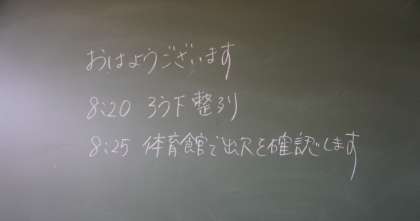 おはようございます
8:20 ろう下整列
8:25 体育館で出欠を確認します